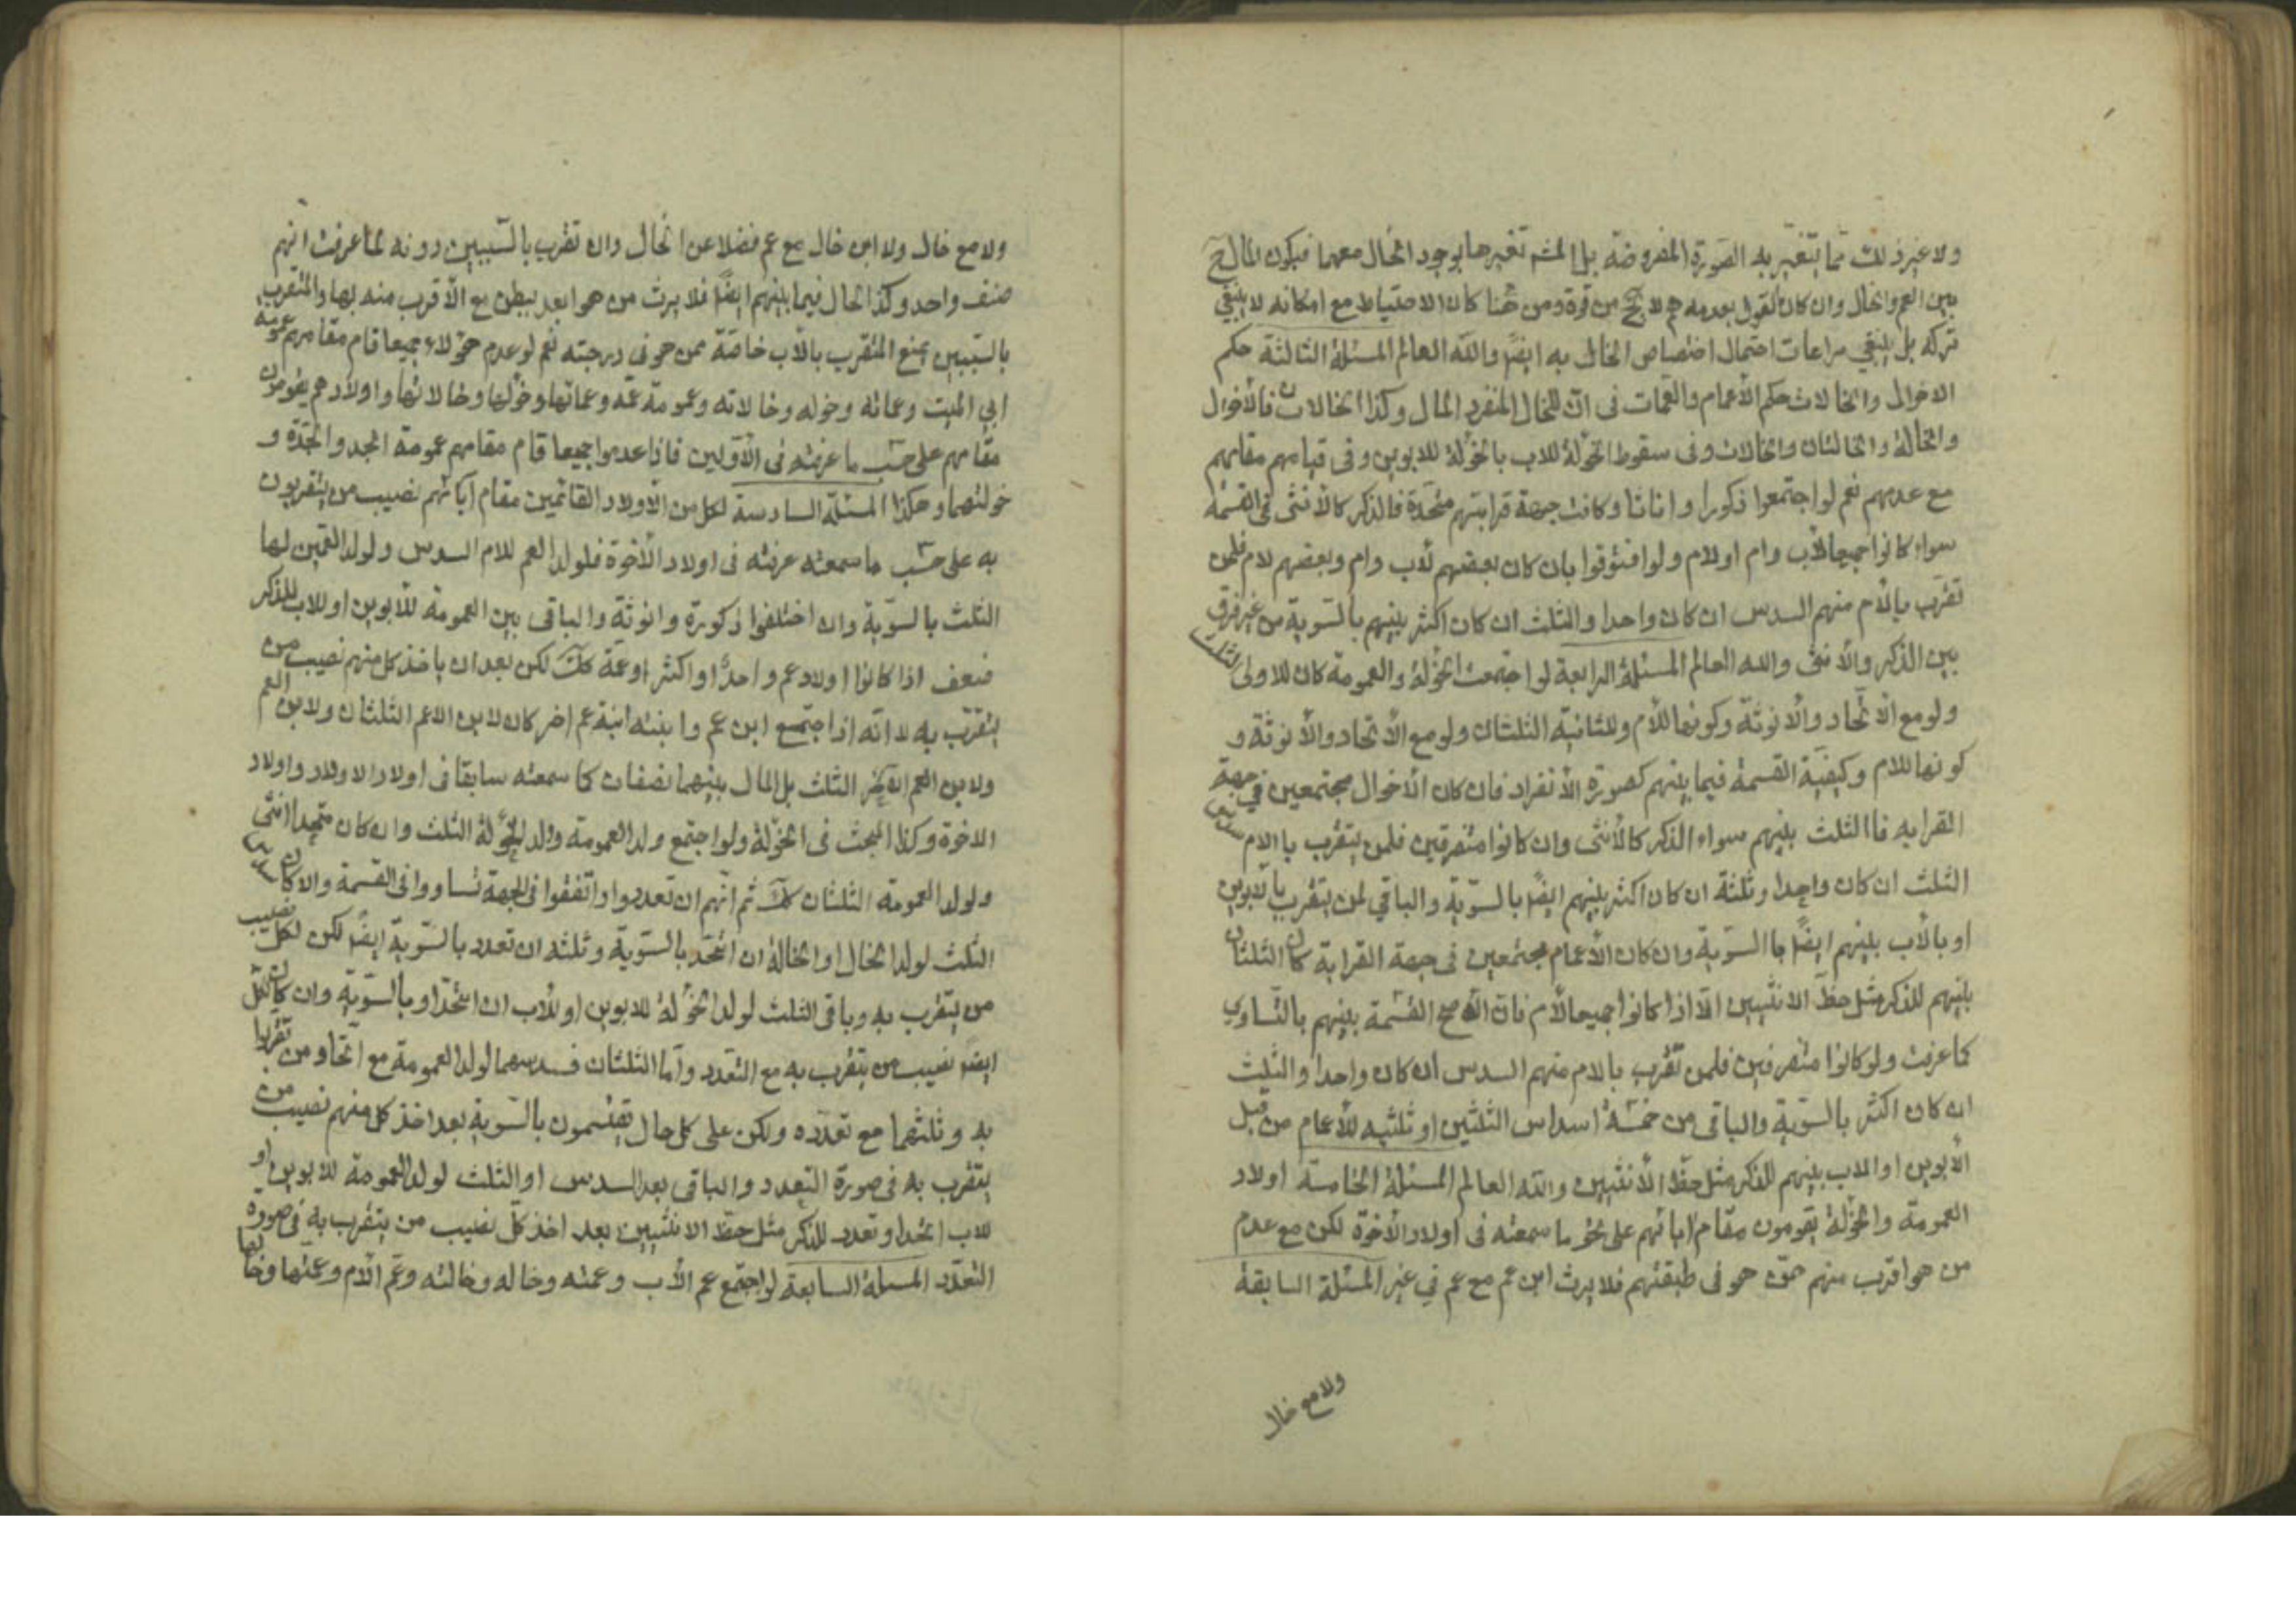 ولا غير ذلك مما يتغير به الصورة المفروضة بل المتجه تغيرها بوجود الخال معهما فيكون المال ح
بين العم والخال وان كان القول بعدمه هم لا يخ من قوة ومن هنا كان الاحتياط مع امكانه لا ينبغي
تركه بل ينبغي مراعات احتمال اختصاص الخال به ايضا والله العالم المسئلة الثالثة حكم
الاخوال والخالات حكم الأعمام والعمات في ان للخال المنفرد المال وكذا الخالان فالأخوال
والخالة والخالتان والخالات وفي سقوط الخؤلة للاب بالخؤلة للابوين وفي قيامهم مقامهم
مع عدمهم نعم لو اجتمعوا ذكورا واناثا وكانت جهة قرابتهم متحدة فالذكر كالأنثى في القسمة
سواء كانوا جميعا لأب وام او لام ولو افترقوا بان كان بعضهم لأب وام وبعضهم لام فلمن
تقرب بالأم منهم السدس ان كان واحدا والثلث ان كان اكثر بينهم بالسوية من غير فرق
بين الذكر والأنثى والله العالم المسئلة الرابعة لو اجتمعت الخؤلة والعمومة كان للاولى الثلث
ولو مع الأتحاد والأنوثة وكونها للأم وللثانية الثلثان ولو مع الأتحاد والأنوثة و
كونها للام وكيفية القسمة فيما بينهم كصورة الأنفراد فان كان الأخوال مجتمعين في جهة
القرابه فاالثلث بينهم سواء الذكر كالأنثى وان كانوا متفرقين فلمن يتقرب باالام سدس
الثلث ان كان واحدا وثلثة ان كان اكثر بينهم ايضا بالسوية والباقي لمن يتقرب بالأبوين
او بالأب بينهم ايضا باالسوية وان كان الأعمام مجتمعين في جهة القرابة كان الثلثان
بينهم للذكر مثل حظ الانثيين الا اذا كانوا جميعا لأم فان الأصح القسمة بينهم بالتساوي
كما عرفت ولو كانوا متفرقين فلمن تقرب بالام منهم السدس ان كان واحدا والثلث
ان كان اكثر بالسوية والباقي من خمسة اسداس الثلثين او ثلثيه للأعمام من قبل
الأبوين او الاب بينهم للذكر مثل حظ الأنثيين والله العالم المسئلة الخامسة اولاد
العمومة والخؤلة يقومون مقام ابائهم على نحو ما سمعته في اولاد الأخوة لكن مع عدم
من هو اقرب منهم ممن هو في طبقتهم فلا يرث ابن عم مع عم في غير المسئلة السابقة
ولا مع خال
ولا مع خال ولا ابن خال مع عم فضلا عن الخال وان تقرب بالسببين دونه لما عرفت انهم
صنف واحد وكذا الحال فيما بينهم ايضا فلا يرث من هو ابعد ببطن مع الأقرب منه بها والمتقرب
بالسببين يمنع المتقرب بالأب خاصة ممن هو في درجته نعم لو عدم هؤلاء جميعا قام مقامهم عمومة
ابي الميت وعماته وخوله وخالاته وعمومة عمه وعماتها وخولها وخالاتها واولادهم يقومون
مقامهم على حسب ما عرفته في الأولين فاذا عدموا جميعا قام مقامهم عمومة الجد والجدة و
خولتهما وهكذا المسئلة السادسة لكل من الأولاد القائمين مقام آبائهم نصيب من يتقربون
به على حسب ما سمعته عرفته في اولاد الأخوة فلولد العم للام السدس ولولد العمين لها
الثلث بالسوية وان اختلفوا ذكورة وانوثة والباقي بين العمومة للأبوين او للاب للذكر
ضعف اذا كانوا اولاد عم واحدا او اكثر او عمة كك لكن بعد ان ياخذ كل منهم نصيب من
يتقرب به لا انه اذا اجتمع ابن عم وابنته ابنة عم اخر كان لابن الاعم الثلثان ولابن العم
ولابن العم الاخر الثلث بل المال بينهما نصفان كما سمعته سابقا في اولاد الاولاد واولاد
الاخوة وكذا البحث في الخؤلة ولو اجتمع ولد العمومة وولد الخؤلة الثلث وان كان متحدا انثى
ولولد العمومة الثلثان كك ثم انهم ان تعددوا واتفقوا في الجهة تساووا في القسمة والا كان سدس
الثلث لولد الخال او الخالة ان اتحد بالسوية وثلثه ان تعدد بالسوية ايضا لكن لكل نصيب
من يتقرب به وباقي الثلث لولد الخؤلة للابوين او للأب ان اتحدا وبالسوية وان كان لكل
ايضا نصيب من يتقرب به مع التعدد وأما الثلثان فسدسهما لولد العمومة مع اتحاد من تقربا
به وثلثهما مع تعدده ولكن على كل حال يقتسمون بالسوية بعد اخذ كل منهم نصيب من
يتقرب به في صورة التعدد والباقي بعد السدس او الثلث لولد العمومة للابوين او
للاب اتحد او تعدد للذكر مثل حظ الانثيين بعد اخذ كل نصيب من يتقرب به في صورة
التعدد المسئلة السابعة لو اجتمع عم الأب وعمته وخاله وخالته وعم الأم وعمتها وخالها